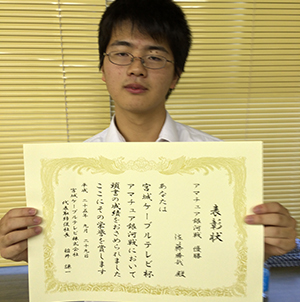 表彰状
アマチュア銀河戦 優勝
佐々木勝哉 殿
あなたは
宮城ケーブルテレビ杯
アマチュア銀河戦において
頭書の成績をおさめられました
ここにその栄誉を賞します
平成二十五年九月二十九日
宮城ケーブルテレビ株式会社
代表取締役社長